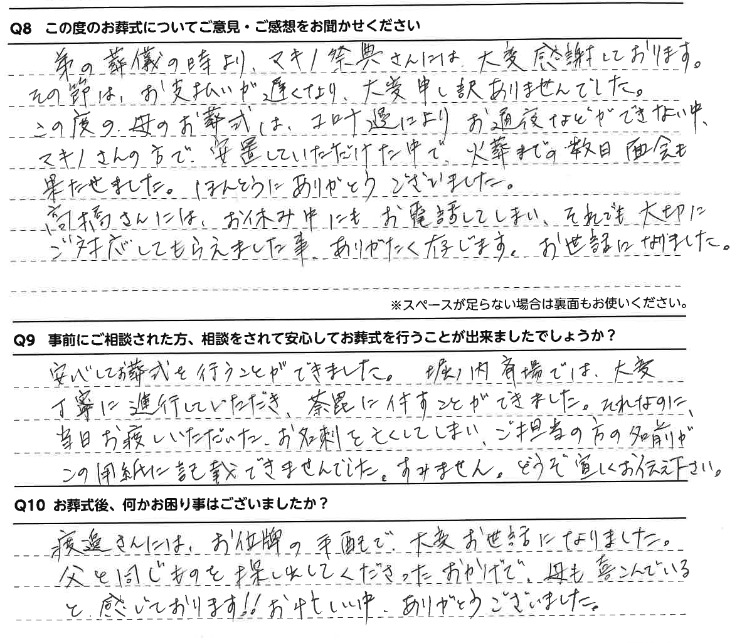 Q8 この度のお葬式についてご意見・ご感想をお聞かせください
弟の葬儀の時より、マキノ祭典さんには、大変感謝しております。
その節は、お支払いが遅くなり、大変申し訳ありませんでした。
この度の、母のお葬式は、コロナ過により お通夜などができない中、
マキノさんの方で、安置していただけた中で、火葬までの数日 面会も
果たせました。ほんとうにありがとう ございました。
高橋さんには、お休み中にも お電話してしまい、それでも 大切に
ご対応してもらえました事、ありがたく存じます。お世話になりました。
※スペースが足らない場合は裏面もお使いください。
Q9 事前にご相談された方、相談をされて安心してお葬式を行うことが出来ましたでしょうか?
安心してお葬式を行うことができました。堀ノ内斎場では、大変
丁寧に進行していただき、荼毘に付すことができました。それなのに、
当日お渡しいただいた、お名刺を亡くしてしまい、ご担当の方の名前が
この用紙に記載できませんでした。すみません。どうぞ宜しくお伝え下さい。
Q10 お葬式後、何かお困り事はございましたか?
渡邉さんには、お位牌の手配で、大変お世話になりました。
父と同じものを探し出してくださったおかげで、母も喜こんでいる
と、感じております!!お忙しい中、ありがとうございました。